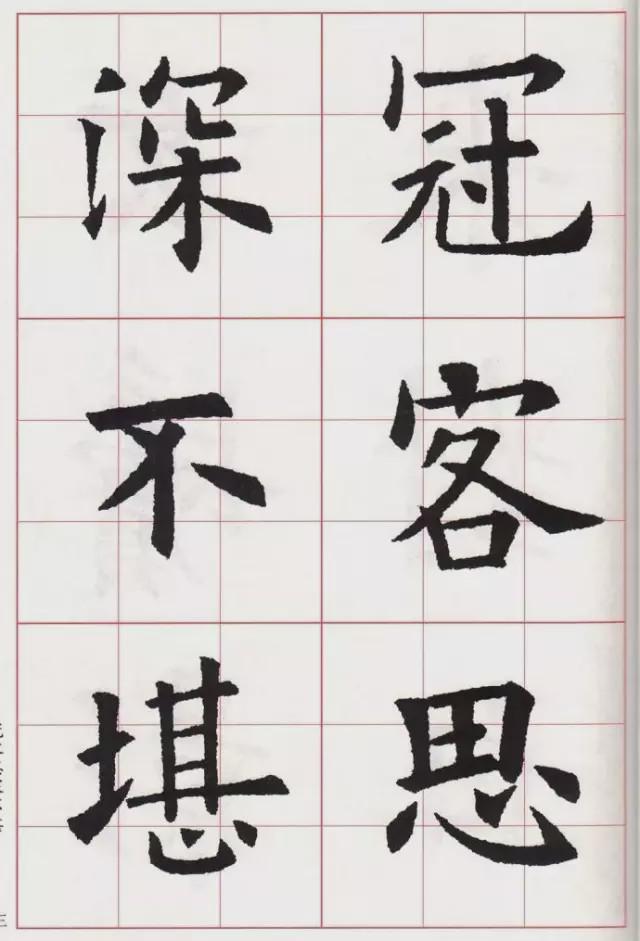 冠客思
深不堪
三